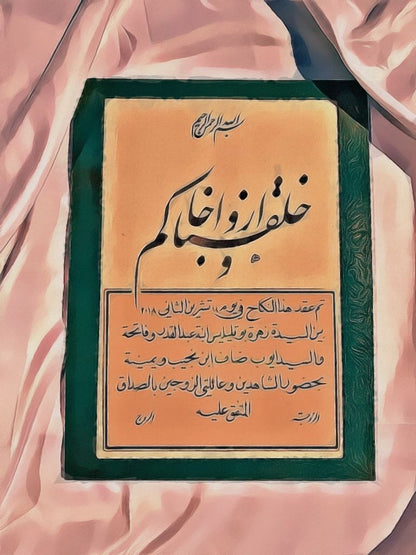 بسم الله الرحمن الرحيم
و خلقناكم ازواجا
تم عقد هذا النكاح في يوم تشرين الثاني ٢٠١٨
بين السيدة زهرة ابنة عبد القدر وفاتحة
والسيد ايوب ضاف ابن نجيب ويمينة
بحضور الشاهدين وعائلتي الزوجين بالصداق
المتفق عليه
الزوجة الزوج